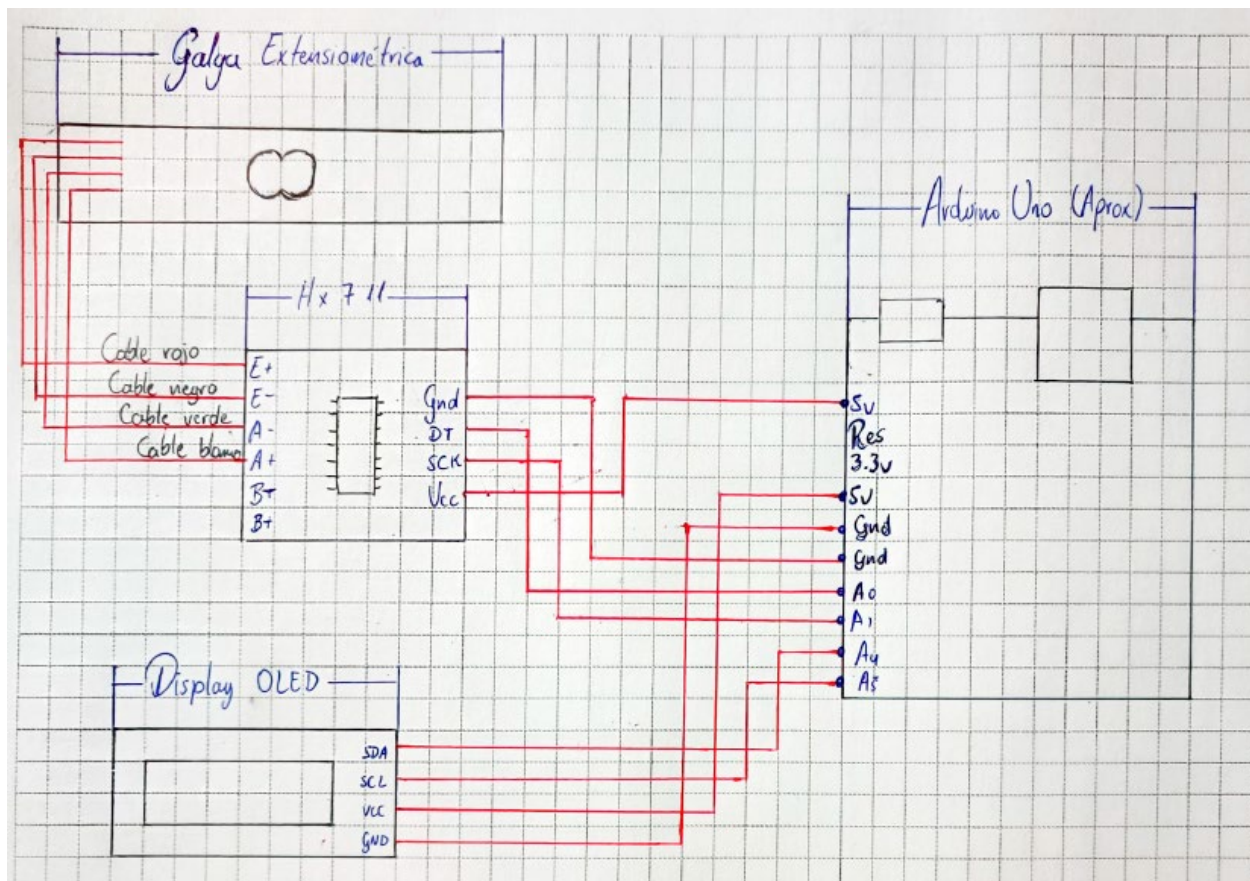 Galga Extensiométrica
Arduino Uno (Aprox)
Hx 711
Cable rojo
Cable negro
Cable verde
Cable blanco
E+
E-
A-
A+
B+
B+
Gnd
DT
SCK
Vcc
5v
Res
3.3v
5v
Gnd
Gnd
A0
A1
A4
A5
Display OLED
SDA
SCL
VCC
GND